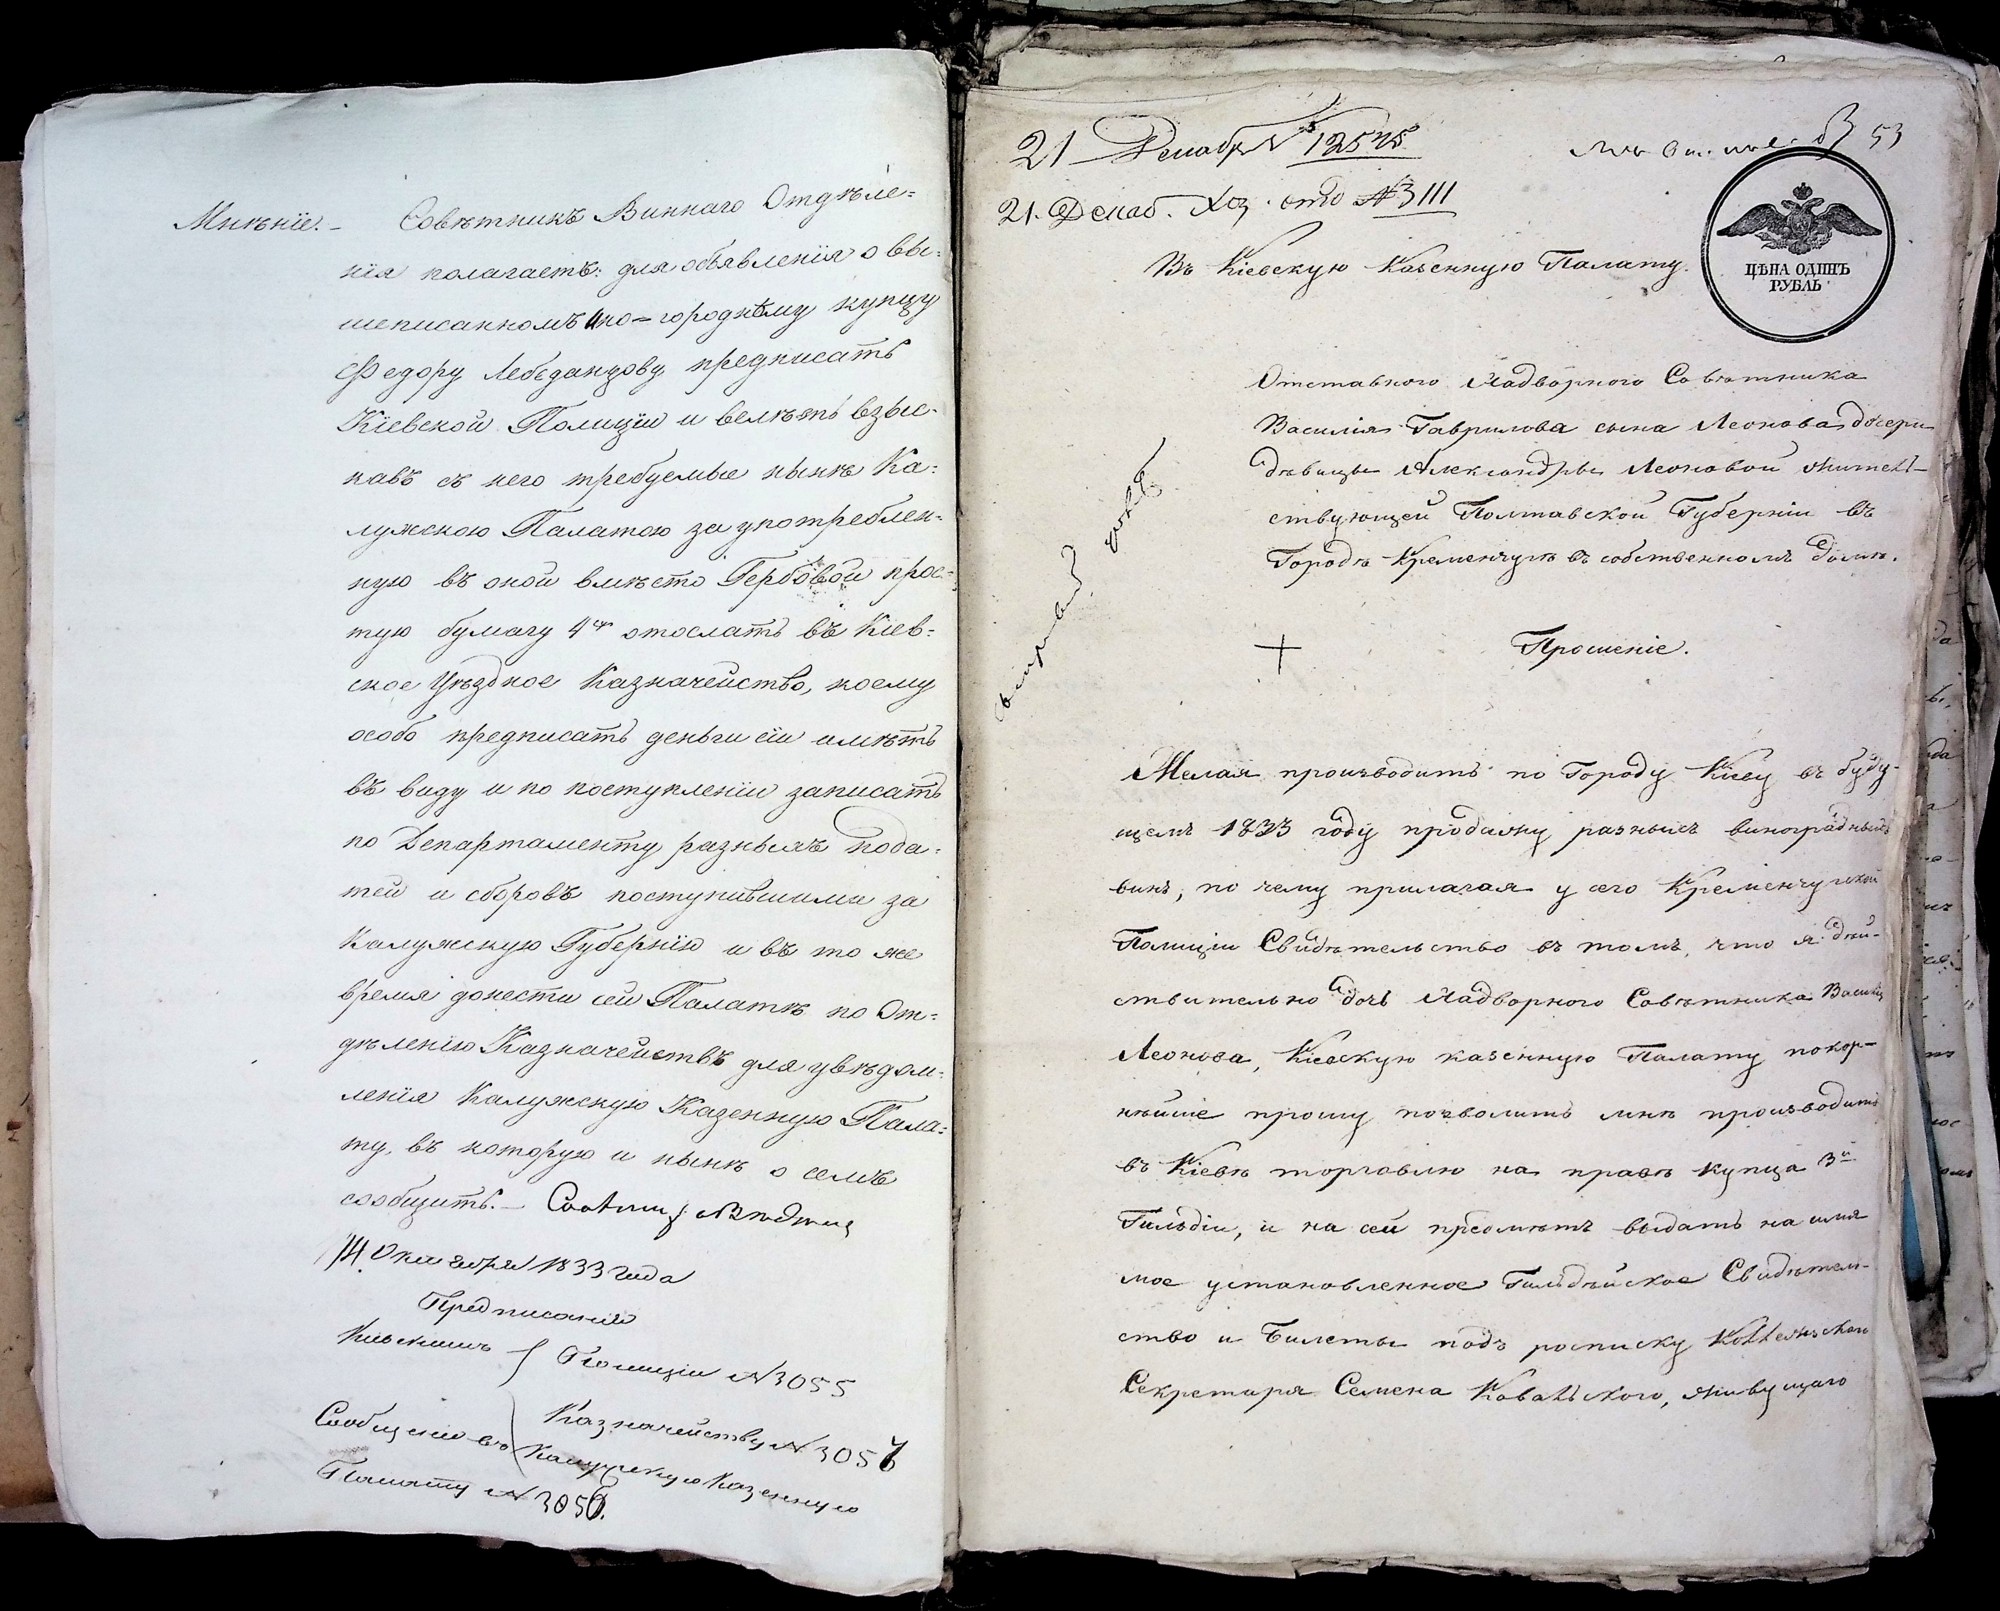 Мнѣніе. – Совѣтникъ Виннаго Отдѣле=
нія полагаетъ: для объявленія о вы=
шеписанномъ ино=городнему купцу
Федору Лебеданцову предписать
Кіевской Полиціи и велѣть взыс=
кавъ съ него требуемые нынѣ Ка=
лужскою Палатою за употреблен=
ную въ оной вмѣсто Гербовой прос=
тую бумагу 4 отослать въ Кіев=
ское Уѣздное Казначейство, коему
особо предписать деньги сіи имѣть
въ виду и по поступленіи записать
по Департаменту разныхъ пода=
тей и сборовъ поступившими за
Калужскую Губернію и въ то же
время донести сей Палатѣ по От=
дѣленію Казначействъ для увѣдом=
ленія Калужскую Казенную Пала=
ту, въ которую и нынѣ о семъ
сообщить. –
14 Октября 1833 года
Предписанія
Кіевскимъ { Полиціи № 3055
Казначейству № 3057
Сообщеніе въ Калужскую Казенную
Палату № 3056.
21 Декабря № 12575
53
21. Декаб. Хоз. отд № 3111
ЦѢНА ОДИНЪ
РУБЛЬ
Въ Кіевскую Казенную Палату.
Отставного Надворного Совѣтника
Василія Гаврилова сына Леонова дочери
дѣвицы Александры Леоновой жител-
ствующей Полтавской Губерніи въ
Городѣ Кременчугѣ въ собственномъ домѣ.
Прошеніе.
Желая производить по Городу Кіеву въ буду-
щемъ 1833 году продажу разныхъ виноградныхъ
винъ, по чему прилагая у сего Кременчугской
Полиціи Свидѣтельство въ томъ, что я дѣй-
ствительно дочь Надворного Совѣтника Василія
Леонова, Кіевскую казенную Палату покор-
нѣйше прошу позволить мнѣ производить
въ Кіевѣ торговлю на правѣ купца 3й
Гильдіи, и на сей предмѣтъ выдать на имя
мое установленное Гильдѣйское Свидѣтел-
ство и Билеты подъ росписку Коллежского
Секретаря Семена Ковальского, живущаго